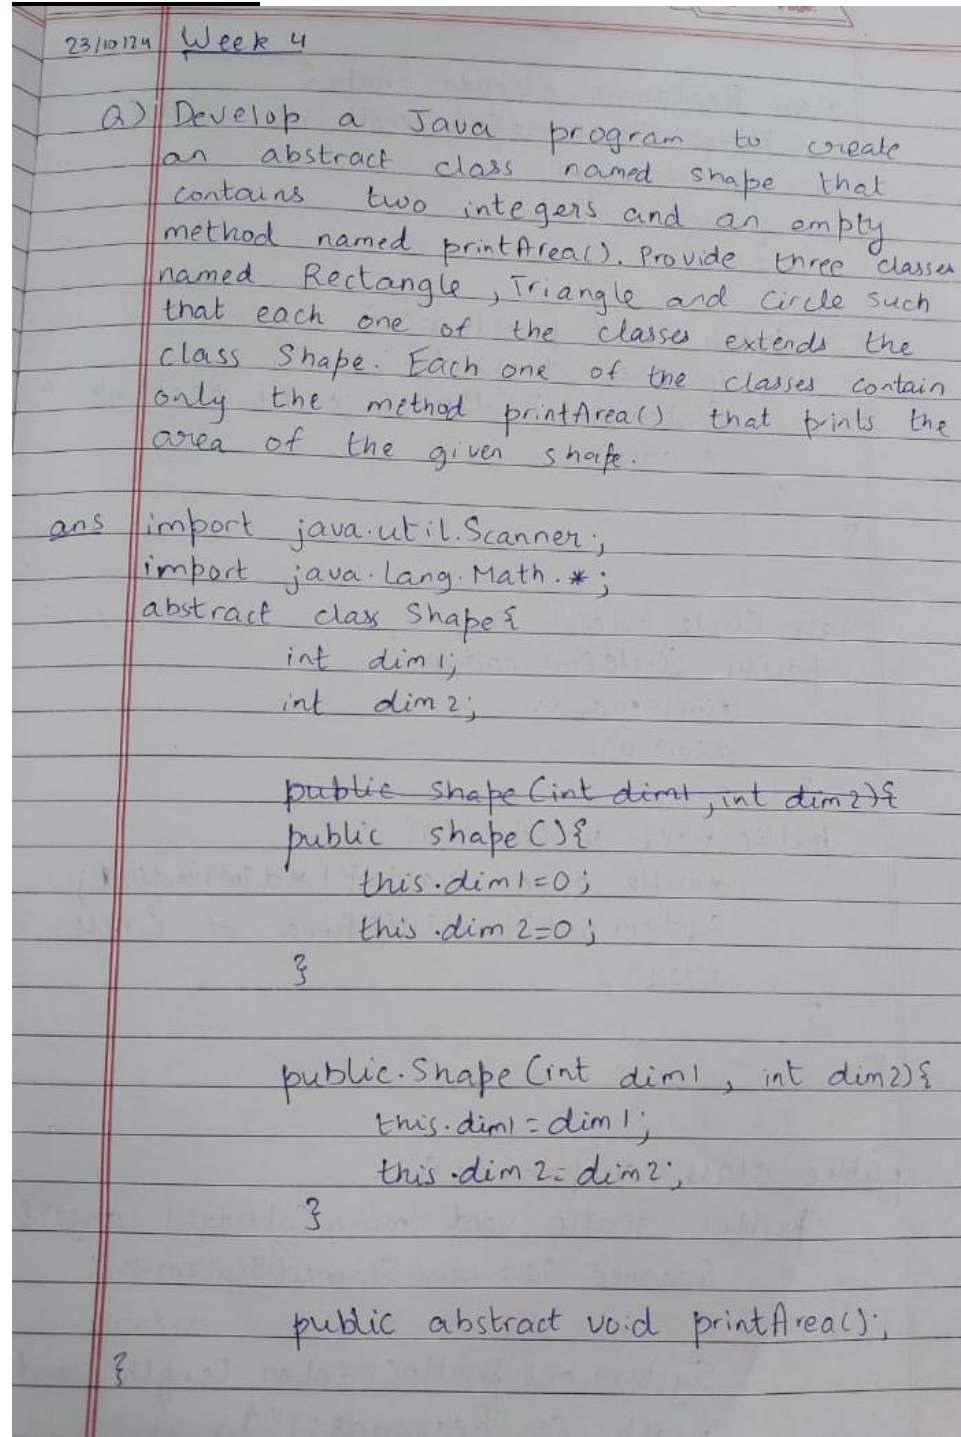 23/10/24 Week 4
a) Develop a Java program to create
an abstract class named shape that
contains two integers and an empty
method named printArea(). Provide three classes
named Rectangle, Triangle and Circle such
that each one of the classes extends the
class Shape. Each one of the classes contain
only the method printArea() that prints the
area of the given shape.
ans import java.util.Scanner;
import java.lang.Math.*;
abstract class Shape{
int dim1;
int dim2;
public shape(int dim1, int dim2){
public shape(){
this.dim1=0;
this.dim2=0;
}
public.Shape(int dim1, int dim2){
this.dim1=dim1;
this.dim2=dim2;
}
public abstract void printArea();
}